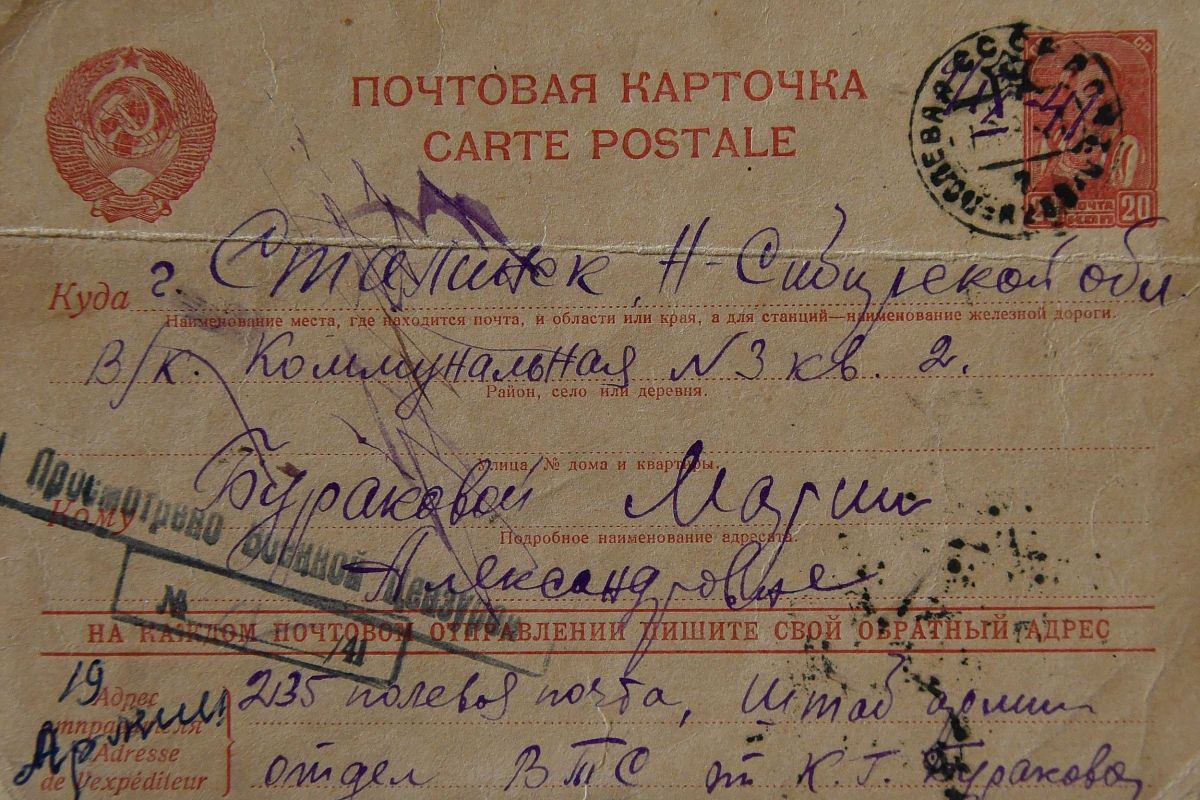 ПОЧТОВАЯ КАРТОЧКА
CARTE POSTALE
ПОЧТА
20
Куда г. Сталинск, Н-Сибирской обл.
Наименование места, где находится почта, и области или края, а для станций—наименование железной дороги.
В/к. Коммунальная № 3 кв. 2.
Район, село или деревня.
Улица, № дома и квартиры.
Кому Бураковой Марии
Подробное наименование адресата.
Александровне
Просмотрено Военной Цензурой
№ /41
НА КАЖДОМ ПОЧТОВОМ ОТПРАВЛЕНИИ ПИШИТЕ СВОЙ ОБРАТНЫЙ АДРЕС
19 Армии
Адрес отправителя
Adresse
de l'expéditeur
235 полевая почта, Штаб армии
отдел ВТС от К. Г. Буракова